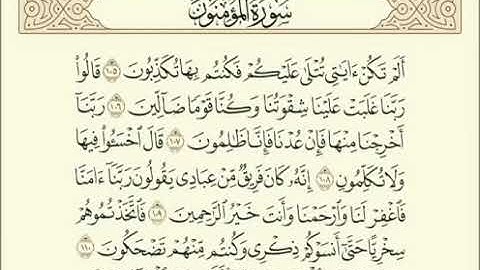 سُورَةُ المُؤْمِنُونَ
أَلَمْ تَكُنْ ءَايَٰتِى تُتْلَىٰ عَلَيْكُمْ فَكُنتُم بِهَا تُكَذِّبُونَ ١٠٥ قَالُوا۟
رَبَّنَا غَلَبَتْ عَلَيْنَا شِقْوَتُنَا وَكُنَّا قَوْمًا ضَآلِّينَ ١٠٦ رَبَّنَآ
أَخْرِجْنَا مِنْهَا فَإِنْ عُدْنَا فَإِنَّا ظَٰلِمُونَ ١٠٧ قَالَ ٱخْسَـُٔوا۟ فِيهَا
وَلَا تُكَلِّمُونِ ١٠٨ إِنَّهُۥ كَانَ فَرِيقٌ مِّنْ عِبَادِى يَقُولُونَ رَبَّنَآ ءَامَنَّا
فَٱغْفِرْ لَنَا وَٱرْحَمْنَا وَأَنتَ خَيْرُ ٱلرَّٰحِمِينَ ١٠٩ فَٱتَّخَذْتُمُوهُمْ
سِخْرِيًّا حَتَّىٰٓ أَنسَوْكُمْ ذِكْرِى وَكُنتُم مِّنْهُمْ تَضْحَكُونَ ١١٠